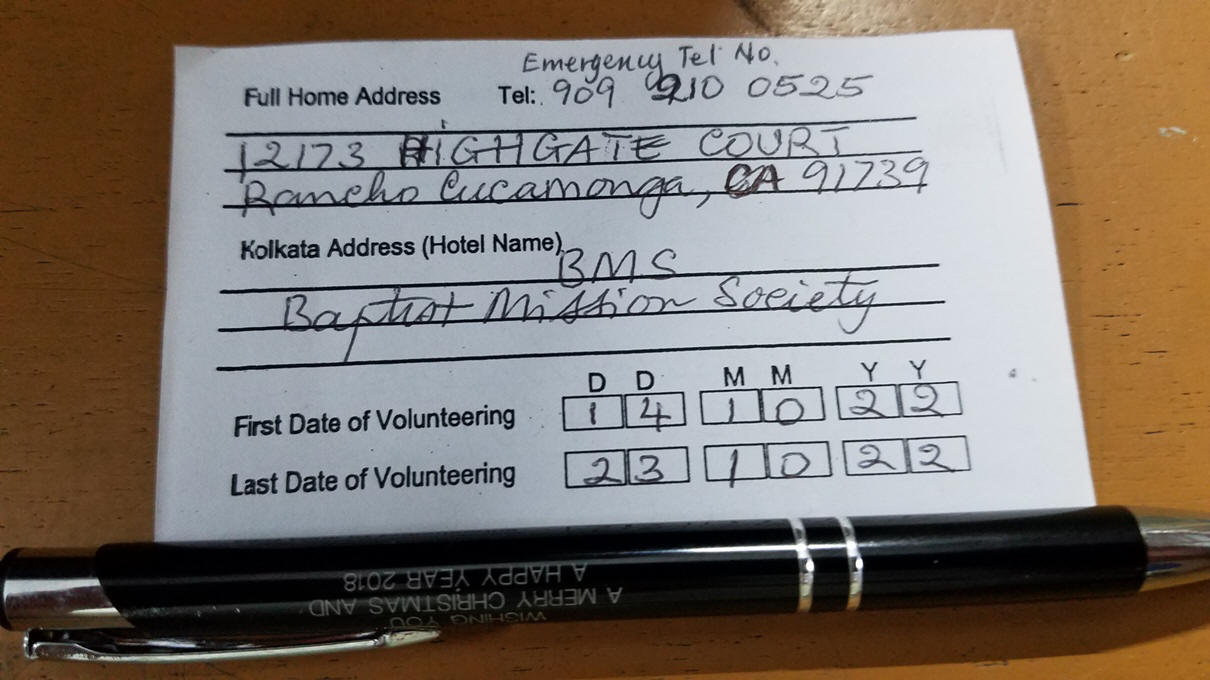 Emergency Tel No.
Full Home Address Tel: 909 910 0525
12173 HIGHGATE COURT
Rancho Cucamonga, CA 91739
Kolkata Address (Hotel Name)
BMS
Baptist Mission Society
D D M M Y Y
First Date of Volunteering 1 4 1 0 2 2
Last Date of Volunteering 2 3 1 0 2 2
WISHING YOU
A MERRY CHRISTMAS AND
A HAPPY YEAR 2018